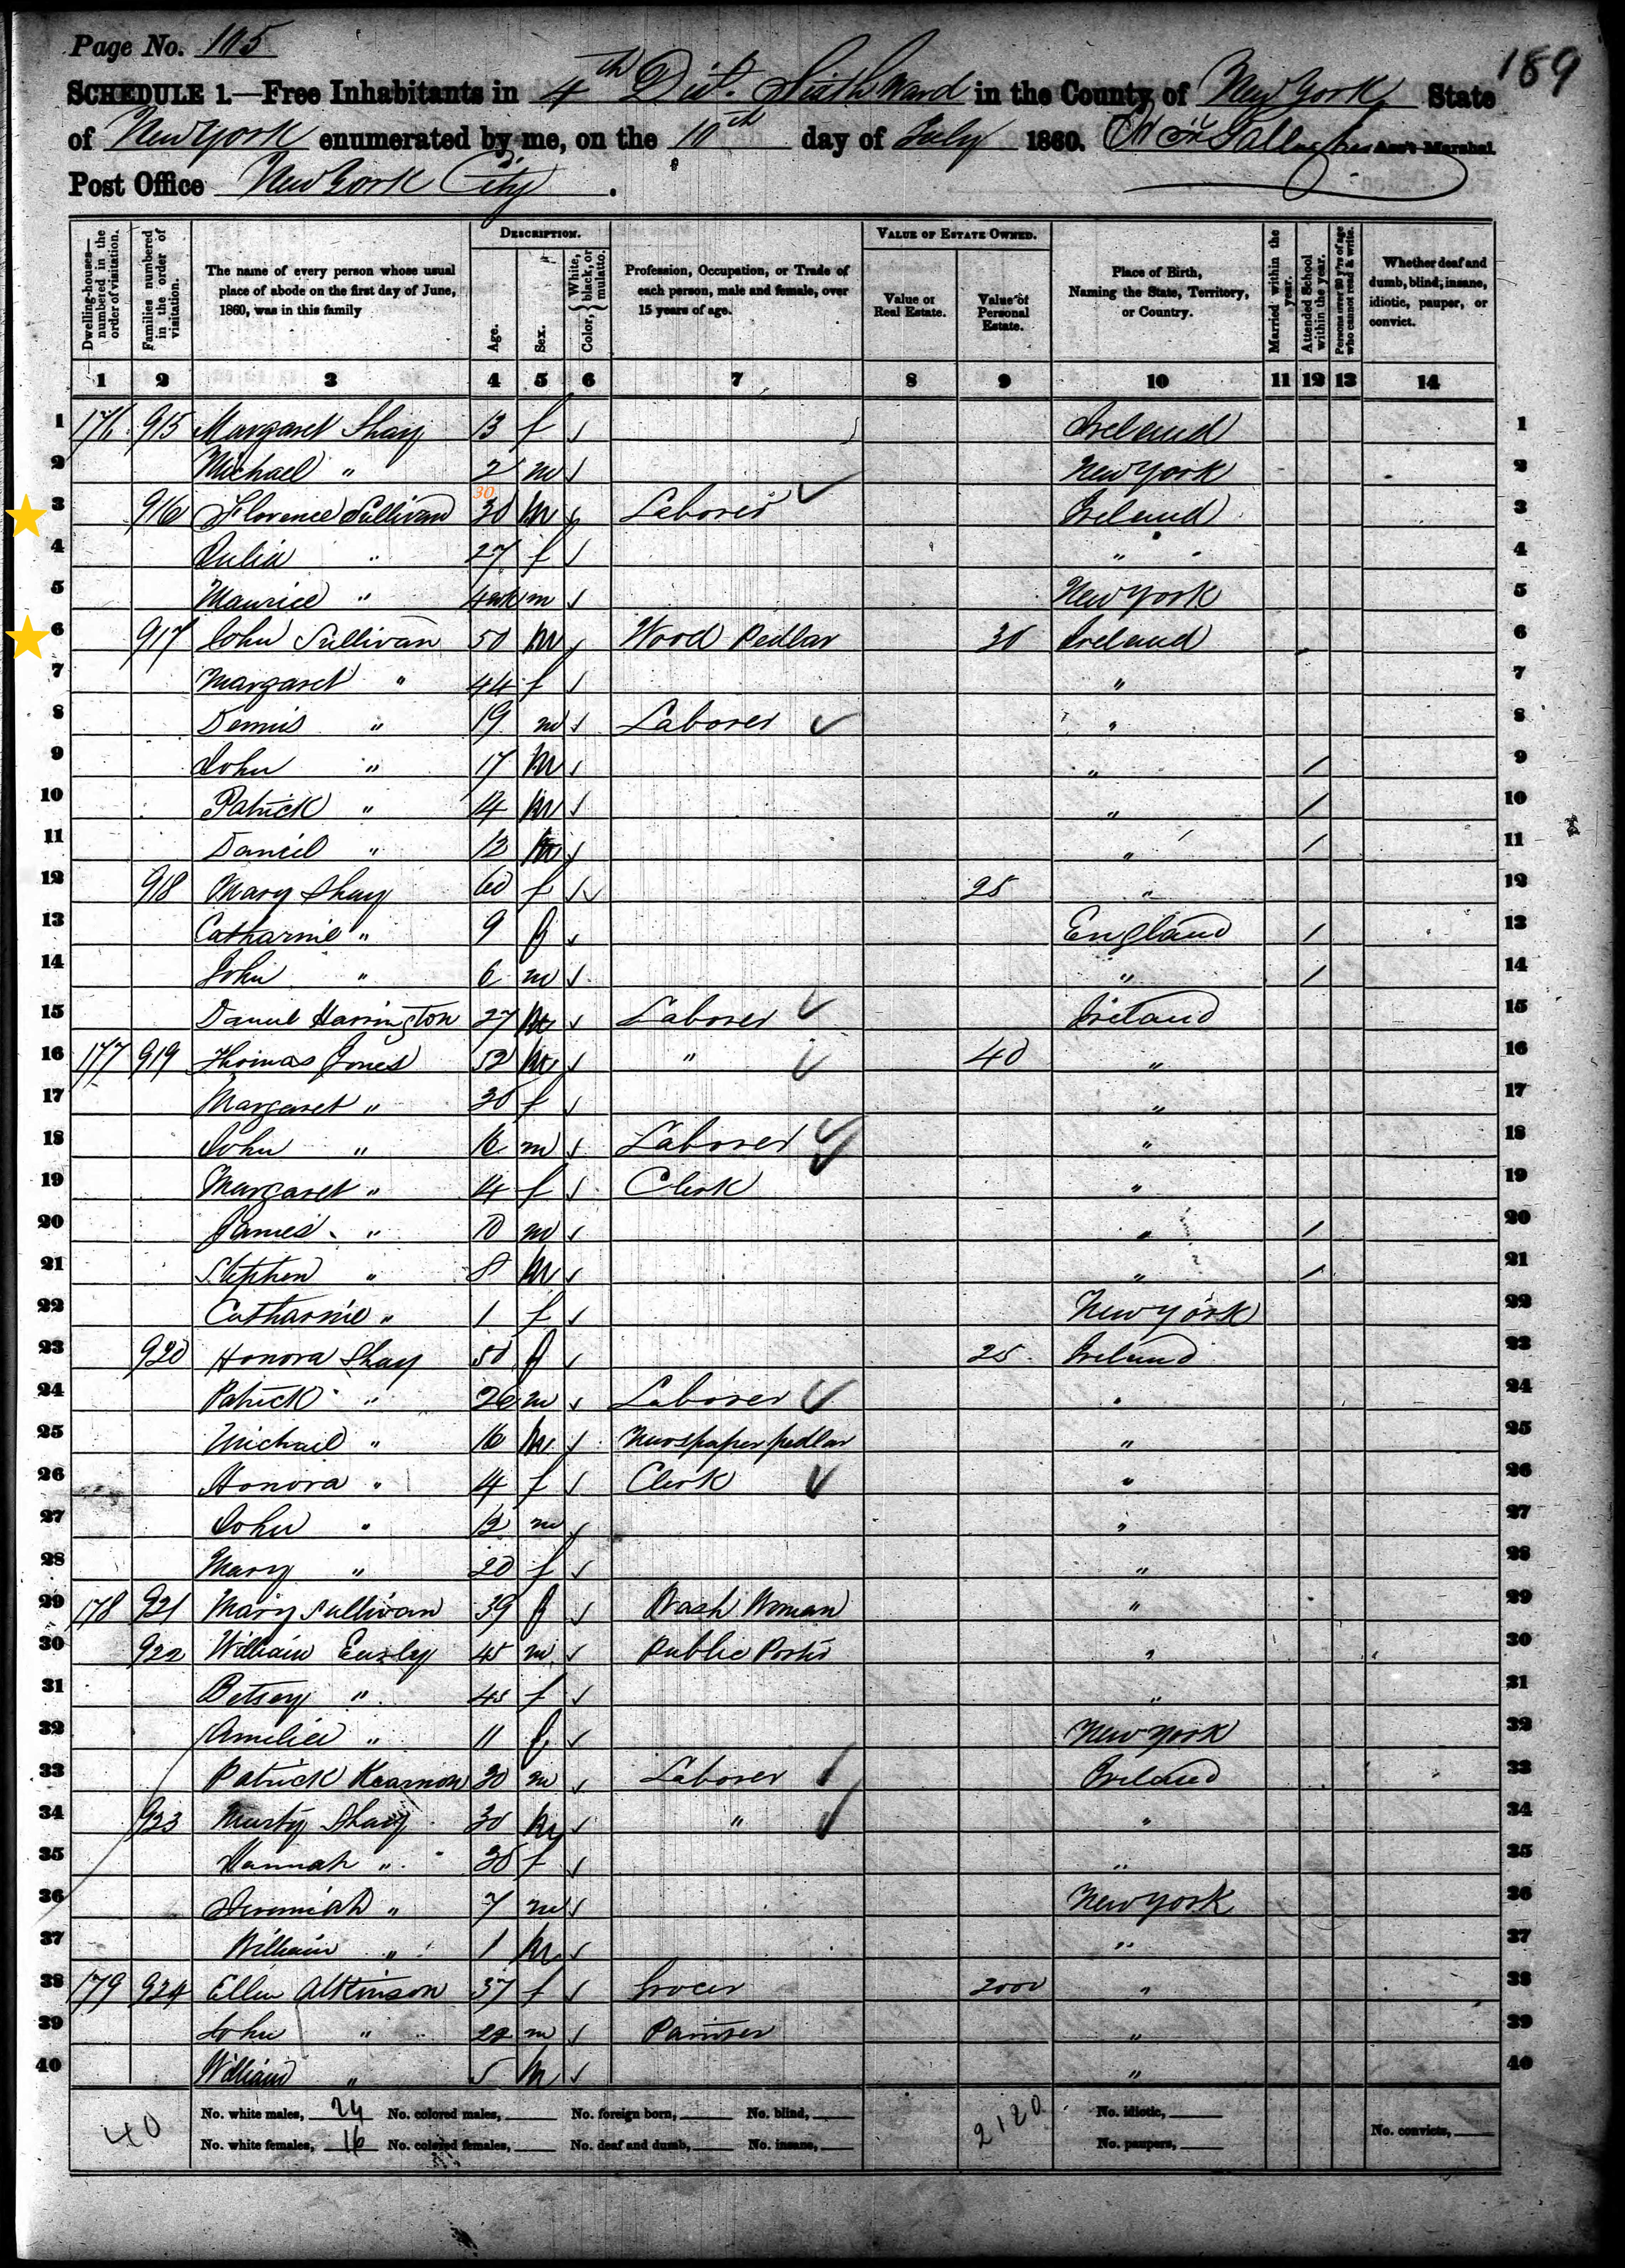 Page No. 105
189
SCHEDULE 1.—Free Inhabitants in 4th Dist. Sixth Ward in the County of New York State
of New York enumerated by me, on the 10th day of July 1860. Gallagher Ass't Marshal.
Post Office New York City.
Dwelling-houses—numbered in the order of visitation.
Families numbered in the order of visitation.
The name of every person whose usual place of abode on the first day of June, 1860, was in this family
DESCRIPTION.
Age.
Sex.
Color, { White, black, or mulatto.
Profession, Occupation, or Trade of each person, male and female, over 15 years of age.
VALUE OF ESTATE OWNED.
Value of Real Estate.
Value of Personal Estate.
Place of Birth, Naming the State, Territory, or Country.
Married within the year.
Attended School within the year.
Persons over 20 y'rs of age who cannot read & write.
Whether deaf and dumb, blind, insane, idiotic, pauper, or convict.
1 2 3 4 5 6 7 8 9 10 11 12 13 14
1 176 915 Margaret Shay 13 f Ireland 1
2 Michael " 2 m New York 2
30
3 916 Florence Sullivan 30 m Laborer Ireland 3
4 Julia " 27 f " 4
5 Maurice " m New York 5
6 917 John Sullivan 50 m Wood Pedlar 30 Ireland 6
7 Margaret " 44 f " 7
8 Dennis " 19 m Laborer " 8
9 John " 17 m " / 9
10 Patrick " 14 m " / 10
11 Daniel " 12 m " / 11
12 918 Mary Shay 60 f 25 " 12
13 Catharine " 9 f England / 13
14 John " 6 m " / 14
15 Daniel Harrington 27 m Laborer Ireland 15
16 177 919 Thomas Jones 52 m " 40 " 16
17 Margaret " f " 17
18 John " 16 m Laborer " 18
19 Margaret " 14 f Clerk " 19
20 James " 10 m " / 20
21 Stephen " 8 m " / 21
22 Catharine " 1 f New York 22
23 920 Honora Shay 50 f 25 Ireland 23
24 Patrick " 26 m Laborer " 24
25 Michael " 16 m Newspaper pedlar " 25
26 Honora " 14 f Clerk " 26
27 John " 12 m " 27
28 Mary " 20 f " 28
29 178 921 Mary Sullivan 39 f Wash Woman " 29
30 922 William Easly 45 m Public Porter " 30
31 Betsey " 45 f " 31
32 Amelia " 11 f New York 32
33 Patrick Kearnon 30 m Laborer Ireland 33
34 923 Murty Shay 30 m " " 34
35 Hannah " f " 35
36 Jeremiah " 7 m New York 36
37 William " 1 m " 37
38 179 924 Ellen Atkinson 37 f Grocer 2000 " 38
39 John " m Painter " 39
40 William " 5 m " 40
40
No. white males, 24 No. colored males, No. foreign born, No. blind, 2120 No. idiotic,
No. white females, 16 No. colored females, No. deaf and dumb, No. insane, No. paupers, No. convicts,